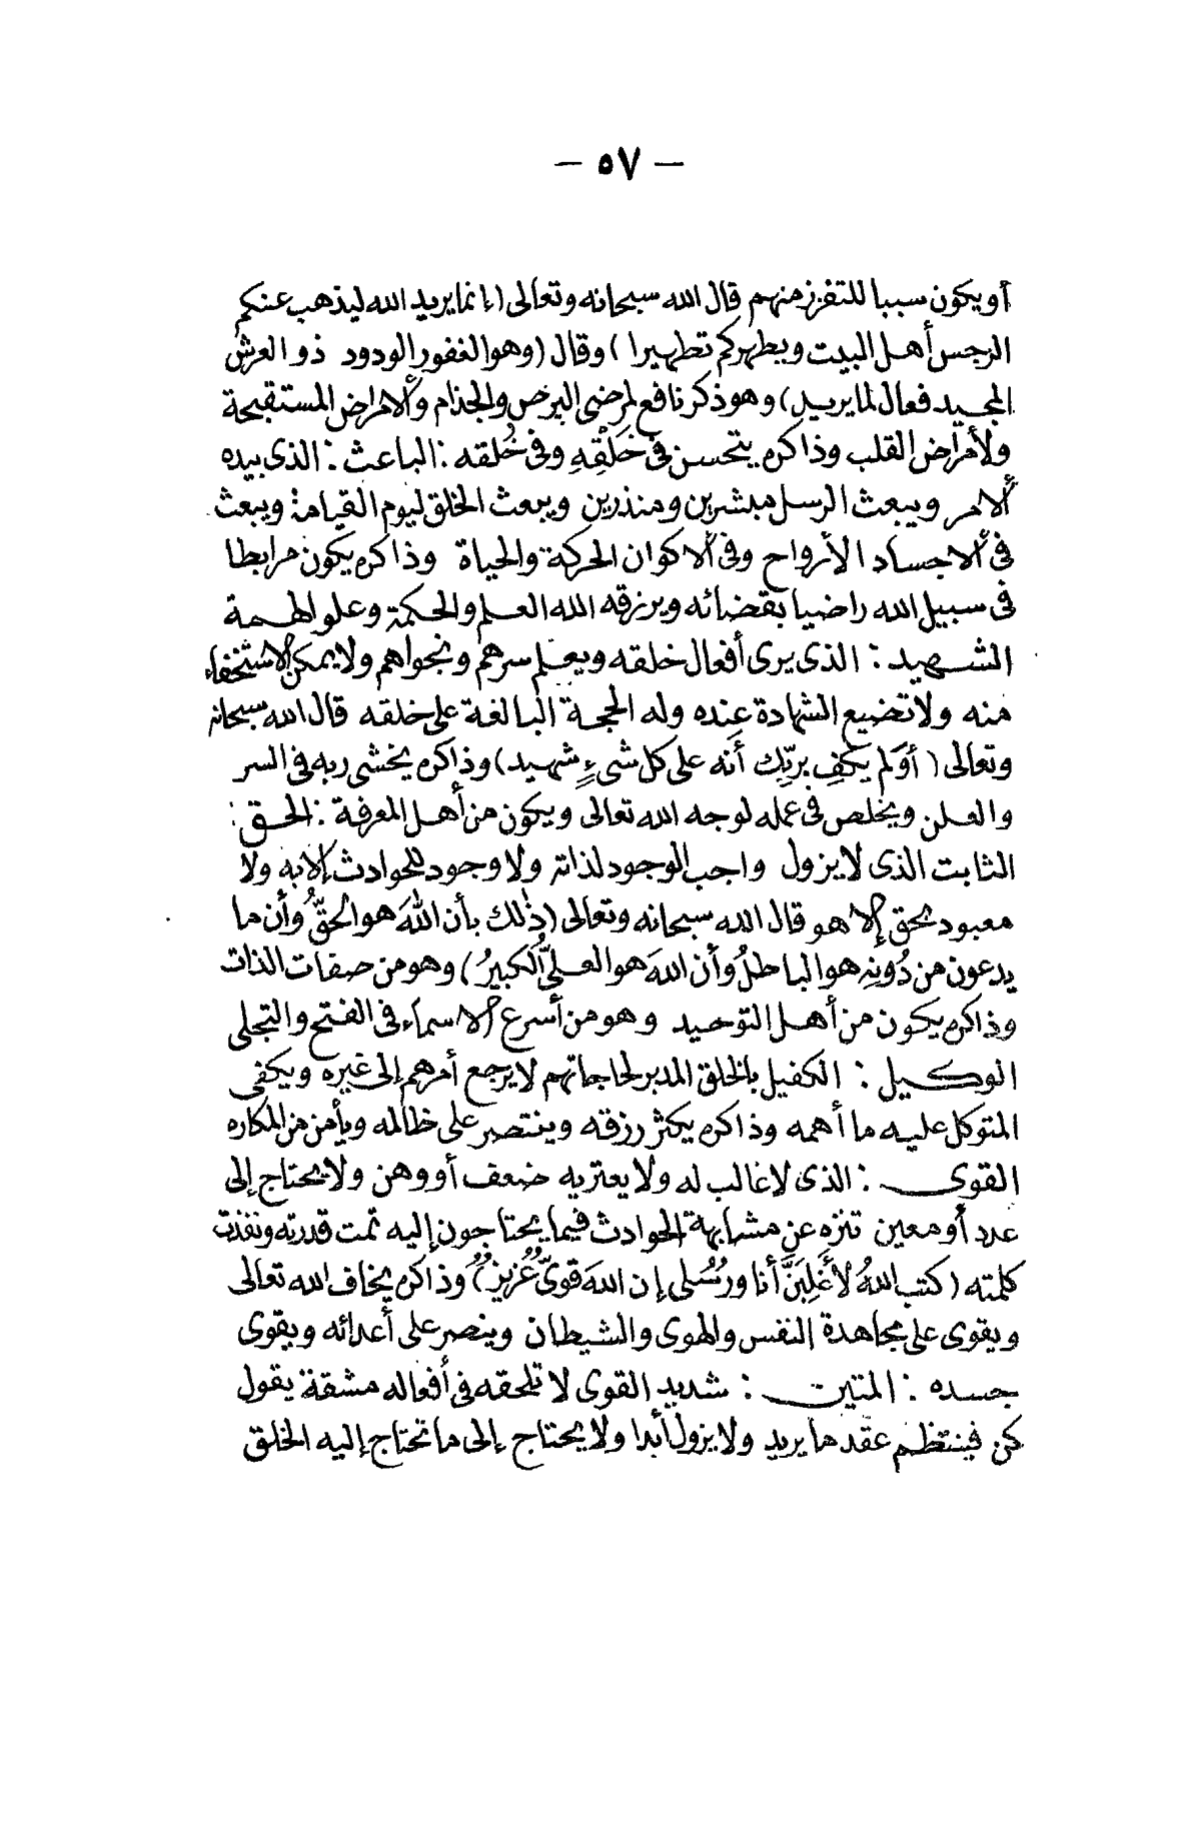 — ٥٧ —
أو يكون سببا للتقزز منهم قال الله سبحانه وتعالى (إنما يريد الله ليذهب عنكم
الرجس أهل البيت ويطهركم تطهيرا) وقال (وهو الغفور الودود ذو العرش
المجيد فعال لما يريد) وهو ذكر نافع لمرضى البرص والجذام والأمراض المستقبحة
ولأمراض القلب وذاكره يتحسن فى خَلْقِهِ وفى خُلقه : الباعث : الذى بيده
الأمر ويبعث الرسل مبشرين ومنذرين ويبعث الخلق ليوم القيامة ويبعث
فى الأجساد الأرواح وفى الأكوان الحركة والحياة وذاكره يكون مرابطا
فى سبيل الله راضيا بقضائه ويرزقه الله العلم والحكمة وعلو الهمة
الشهيد : الذى يرى أفعال خلقه ويعلم سرهم ونجواهم ولا يمكن الاستخفاء
منه ولا تضيع الشهادة عنده وله الحجة البالغة على خلقه قال الله سبحانه
وتعالى (أوَلم يَكفِ بربِّك أَنه على كل شىءٍ شهيد) وذاكره يخشى ربه فى السر
والعلن ويخلص فى عمله لوجه الله تعالى ويكون من أهل المعرفة : الحق :
الثابت الذى لا يزول واجب الوجود لذاته ولا وجود للحوادث إلا به ولا
معبود بحق إلا هو قال الله سبحانه وتعالى (ذٰلك بأن اللهَ هو الحقُّ وأن ما
يدعون من دُونِه هو الباطلُ وأن اللهَ هو العلىُّ الكبيرُ) وهو من صفات الذات
وذاكره يكون من أهل التوحيد وهو من أسرع الأسماء فى الفتح والتجلى
الوكيل : الكفيل بالخلق المدبر لحاجاتهم لا يرجع أمرهم إلى غيره ويكفى
المتوكل عليه ما أهمه وذاكره يكثر رزقه وينتصر على ظالمه ويأمن من المكاره
القوى : الذى لا غالب له ولا يعتريه ضعف أو وهن ولا يحتاج إلى
عدد أو معين تنزه عن مشابهة الحوادث فيما يحتاجون إليه تمت قدرته ونفذت
كلمته (كتب اللهُ لأغلِبَنَّ أنا ورُسُلى إن اللهَ قوىٌّ عزيزٌ) وذاكره يخاف الله تعالى
ويقوى على مجاهدة النفس والهوى والشيطان وينصر على أعدائه ويقوى
جسده : المتين : شديد القوى لا تلحقه فى أفعاله مشقة يقول
كن فينتظم عقد ما يريد ولا يزول أبدا ولا يحتاج إلى ما تحتاج إليه الخلق